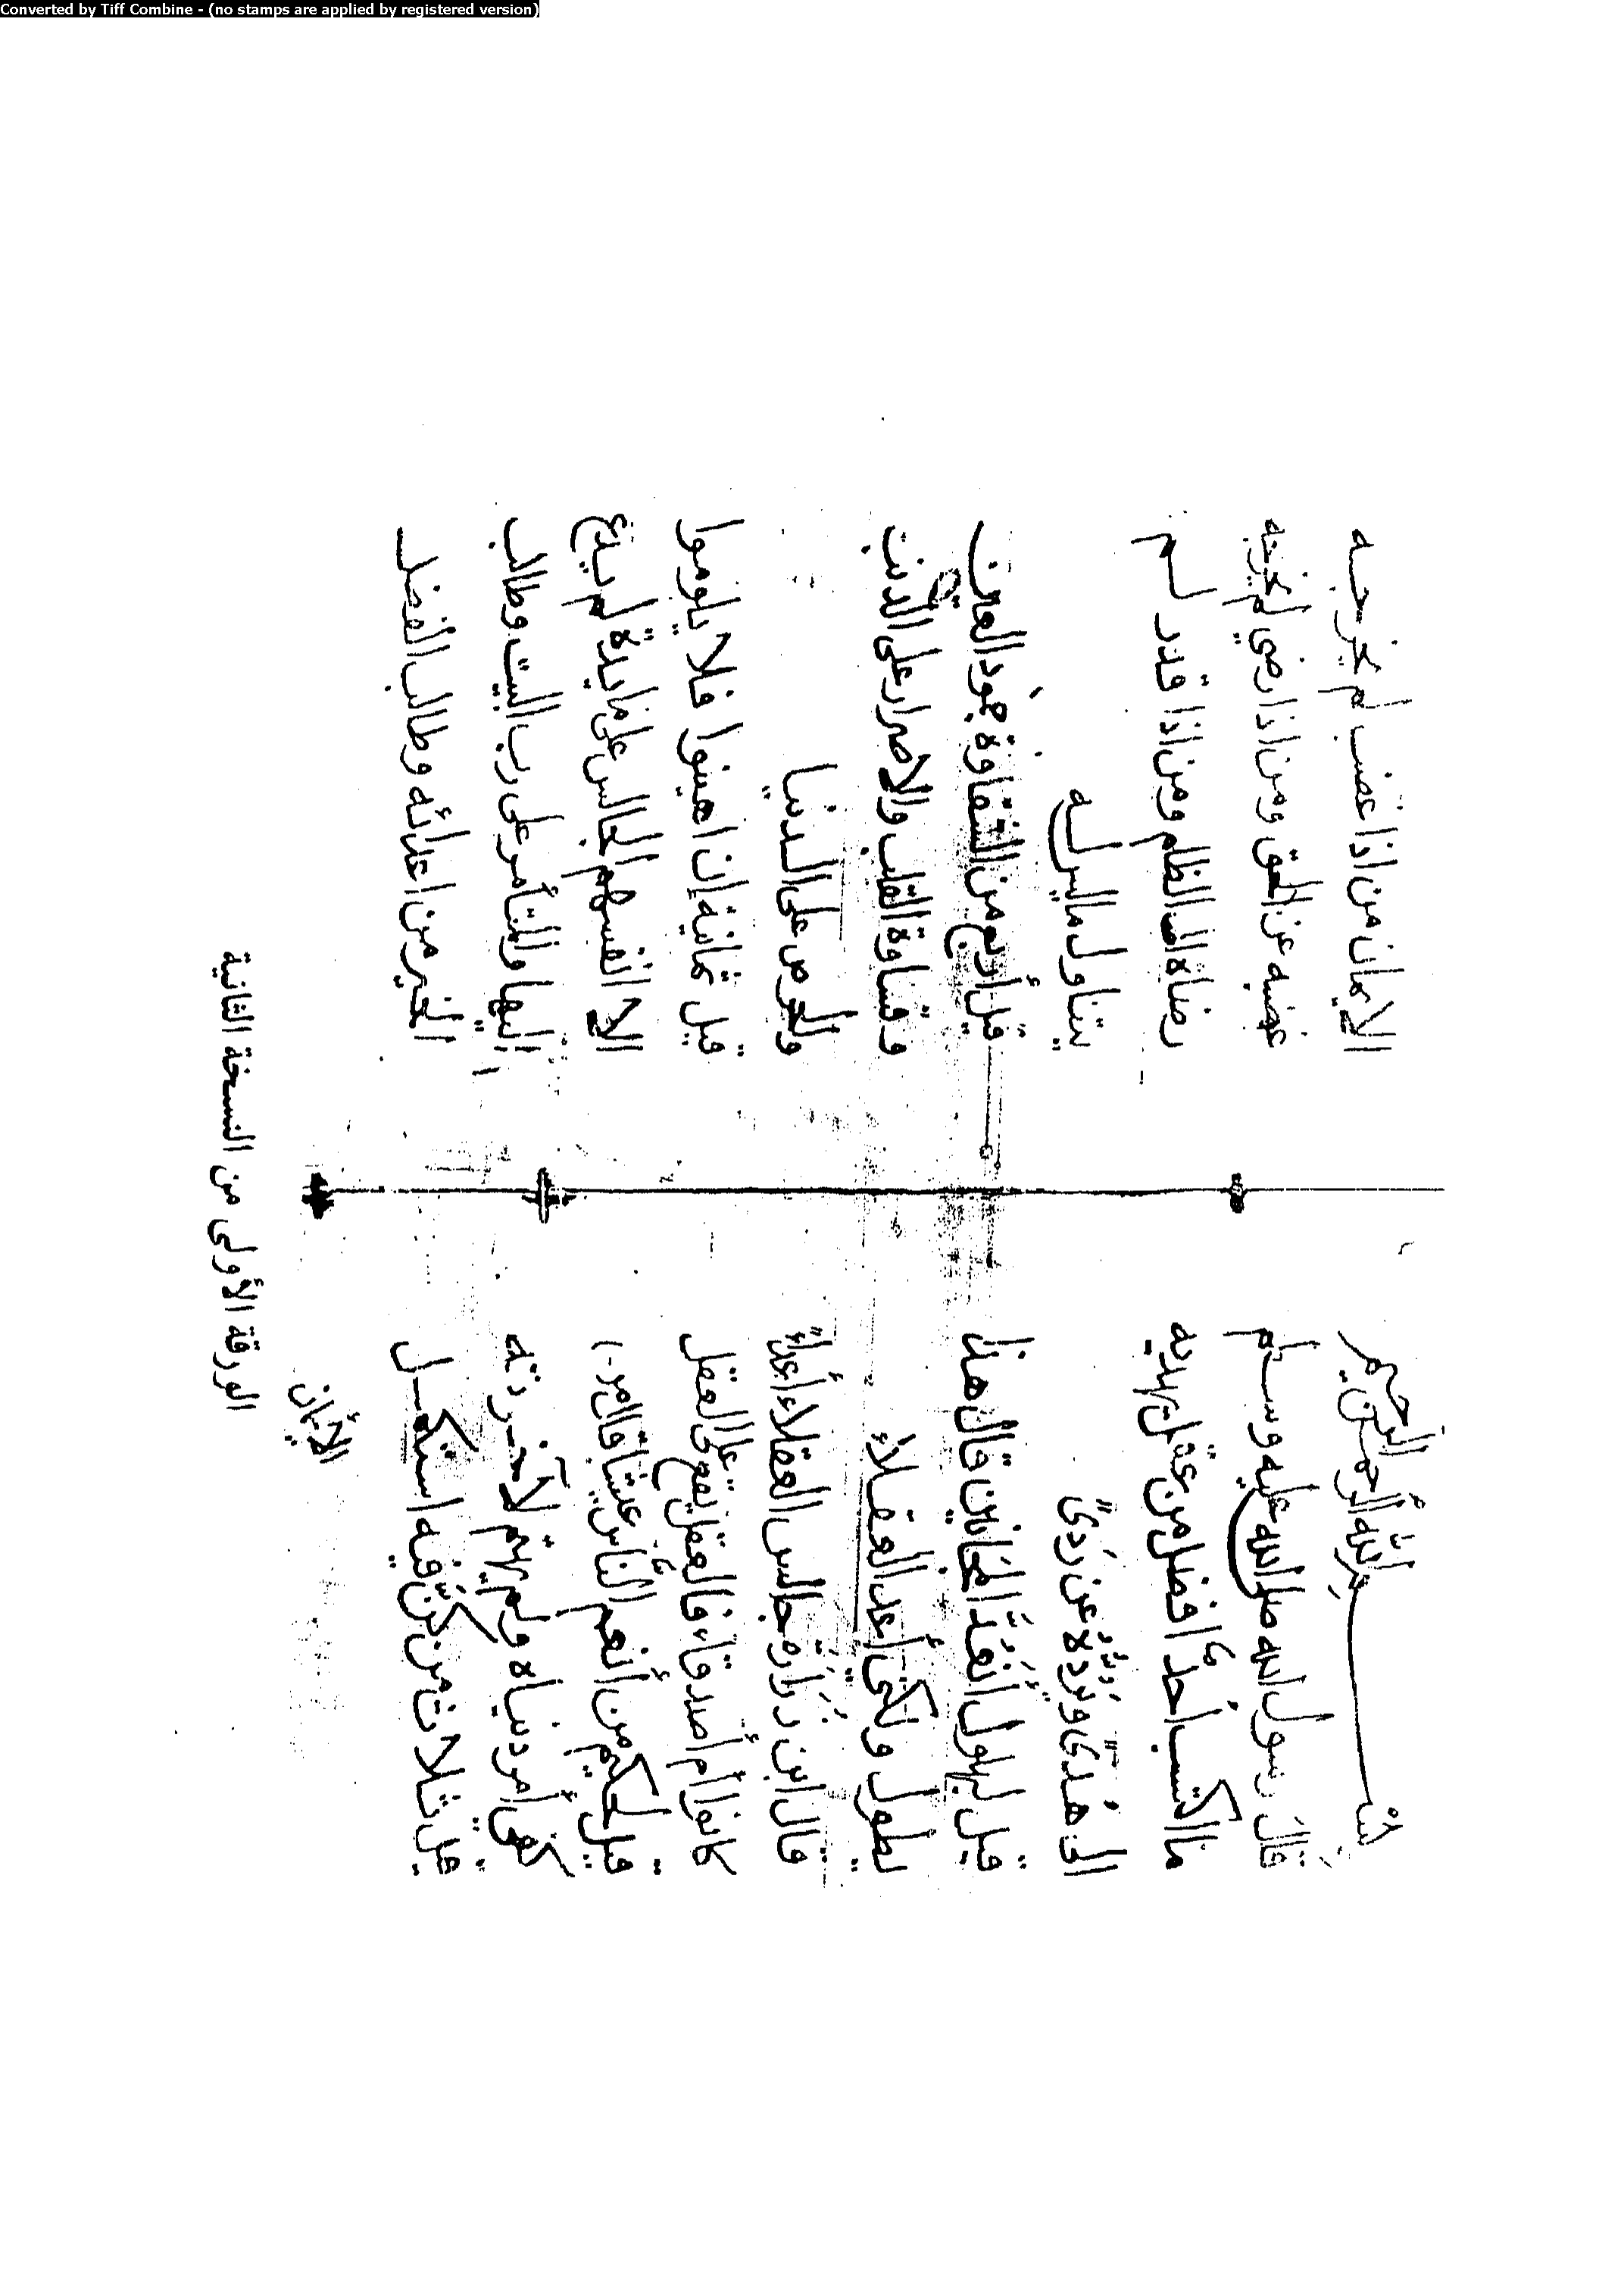 Converted by Tiff Combine - (no stamps are applied by registered version)
بسم الله الرحمن الرحيم
قال رسول الله صلى الله عليه وسلم
ما اكتسب أحد أفضل من عقل يهديه
الى هدىً ويرده عن ردىً
قيل لبهلول أتعد المجانين قال هذا
يطول ولكني أعد العقلاء
قال ابن زرارة جالس العقلاء أعداءً
كانوا أم أصدقاء فالعقل يقع على العقل
قيل لحكيم من أنعم الناس عيشا قال من
كفى أمر دنياه ولم يهتم لآخرته
قيل ثلاث من كن فيه استكمل
الايمان
الايمان من اذا غضب لم يخرجه
غضبه عن الحق ومن اذا رضي لم يخرجه
رضاه الى الظلم ومن اذا قدر لم
يتناول ما ليس له
قيل أربع من الشقاوة جمود العين
وقساوة القلب والاصرار على الذنب
والحرص على الدنيا
قيل ثمانية إن اهينوا فلا يلوموا
الا انفسهم الجالس على مايدة لم يدع
اليها والمتأمر على رب البيت وطالب
الخير من اعدائه وطالب الفضل
الورقة الأولى من النسخة الثانية